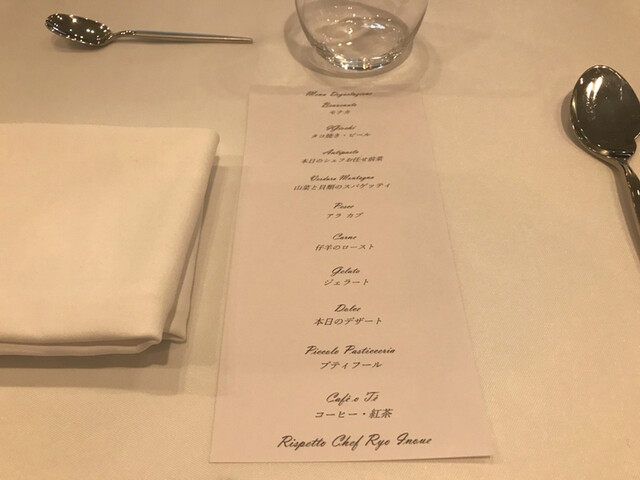 Menu Degustazione
Benvenuto
モナカ
タコ焼き・ビール
Antipasto
本日のシェフお任せ前菜
Verdure Montagna
山菜と貝類のスパゲッティ
Pesce
アラ カブ
Carne
仔羊のロースト
Gelato
ジェラート
Dolce
本日のデザート
Piccolo Pasticceria
プティフール
Café e Té
コーヒー・紅茶
Rispetto Chef Ryo Inoue